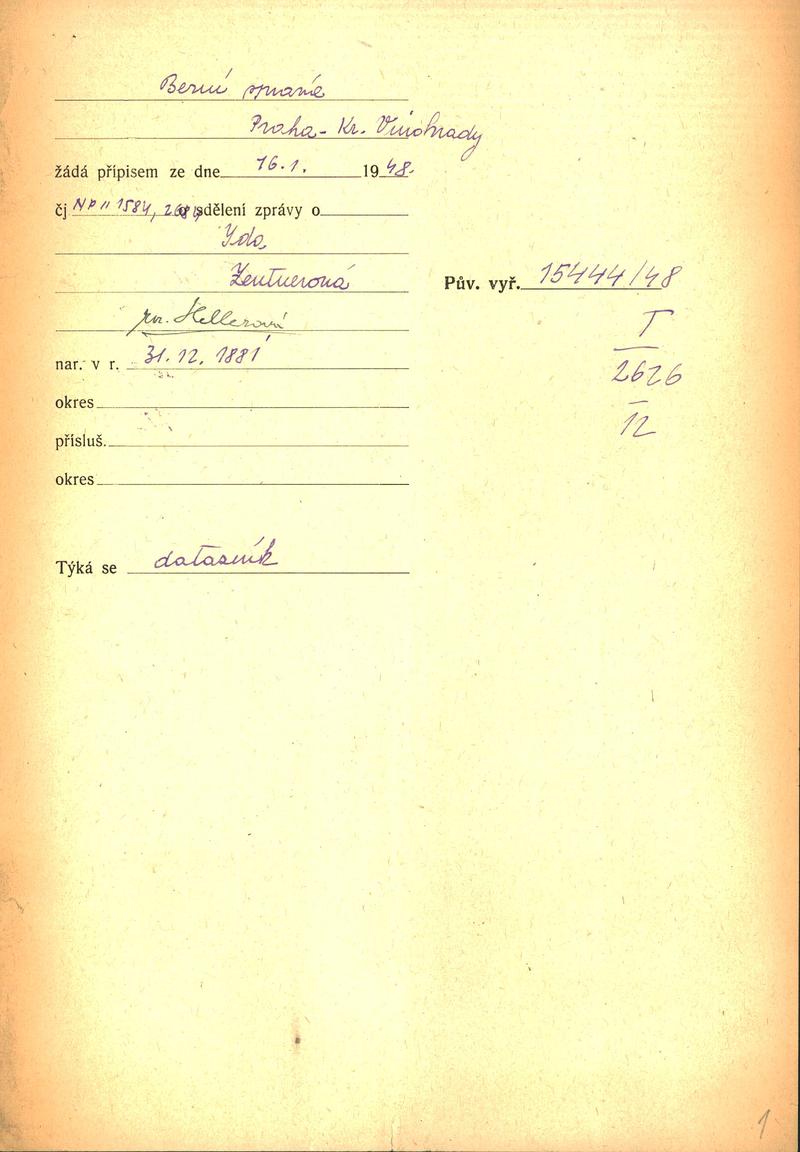 Berní správě
Praha - Kr. Vinohrady
žádá přípisem ze dne 16.1. 1948.
čj NP II 1584, o sdělení zprávy o
Ida
Zentnerová
roz. Hellerová
nar. v r. 31. 12. 1881
okres
přísluš.
okres
Týká se dotazník
Pův. vyř. 15444/48
T
2626
12
1